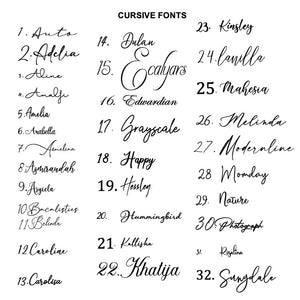 CURSIVE FONTS
1. Auto
2. Adelia
3. Aline
4. Amalfi
5. Amelia
6. Arabella
7. Amelina
8. Asmirandah
9. Asyiela
10. Bacalisties
11. Belinda
12. Caroline
13. Carolisa
14. Dulan
15. Ecalyars
16. Edwardian
17. Grayscale
18. Happy
19. Hossley
20. Hummingbird
21. Kallisha
22. Khatija
23. Kinsley
24. lavilla
25. Mahesia
26. Melinda
27. Modernline
28. Monday
29. Nature
30. Photograph
31.
32. Sunydale